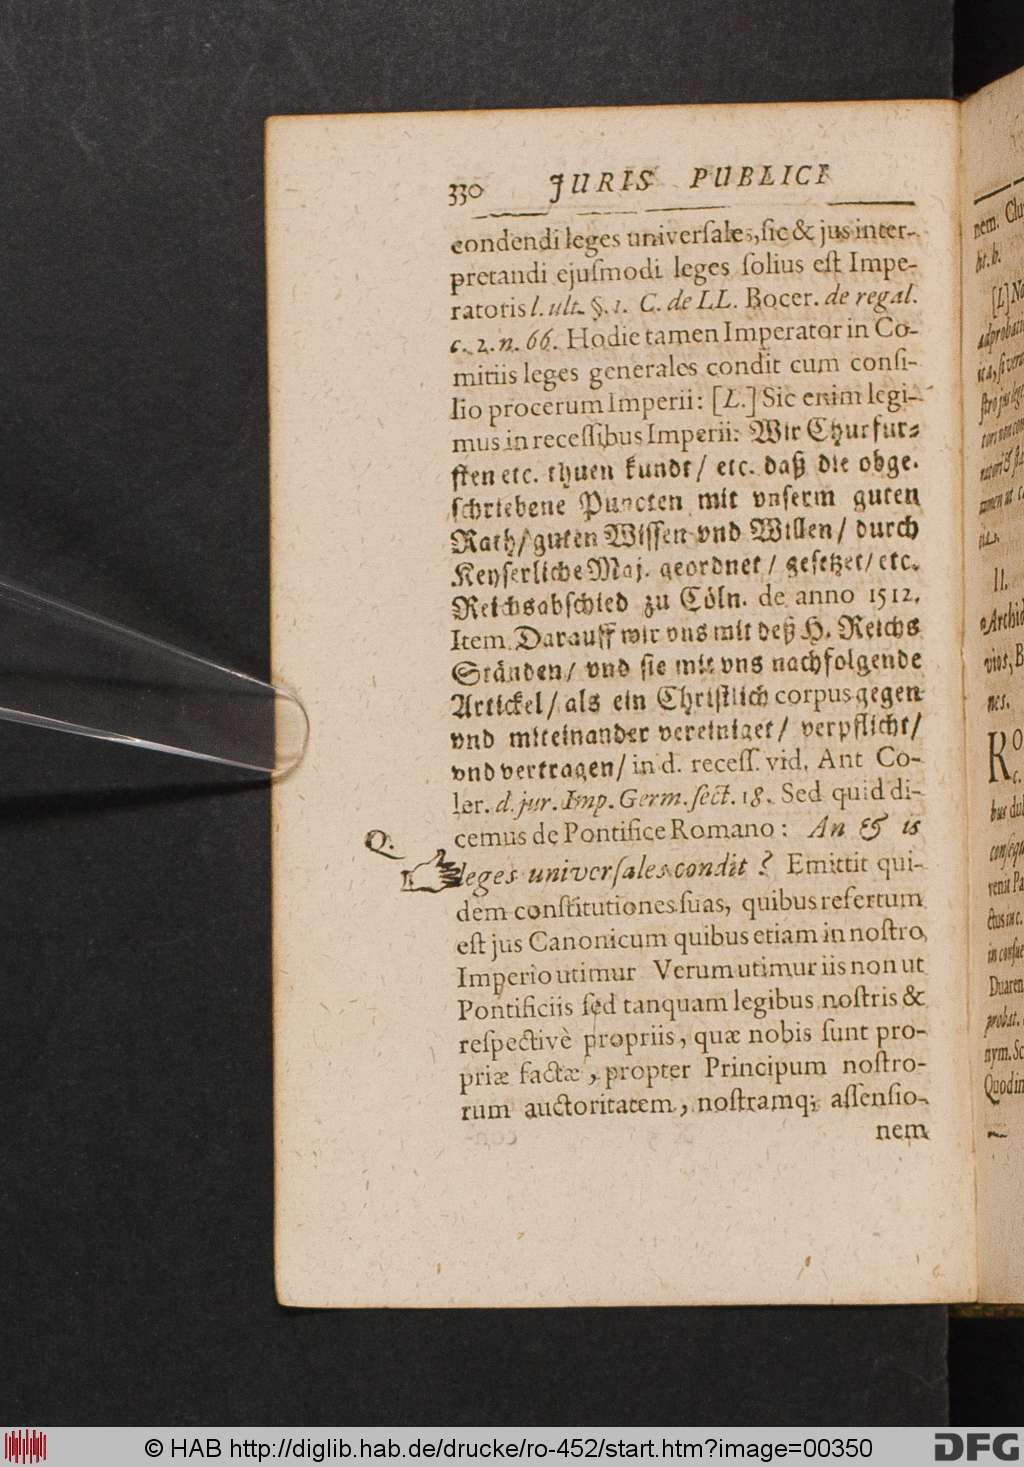 330 JURIS PUBLICI
condendi leges univerſales, ſic & jus inter-
pretandi ejuſmodi leges ſolius eſt Impe-
ratoris l. ult. §. 1. C. de LL. Bocer. de regal.
c. 2. n. 66. Hodie tamen Imperator in Co-
mitiis leges generales condit cum conſi-
lio procerum Imperii: [L.] Sic enim legi-
mus in receſſibus Imperii: Wir Churfur-
ſten etc. thuen kundt/ etc. daß die obge-
ſchriebene Puncten mit vnſerm guten
Rath/ guten Wiſſen vnd Willen/ durch
Keyſerliche Maj. geordnet/ geſetzet/ etc.
Reichsabſchied zu Cöln. de anno 1512.
Item Darauff wir vns mit deß H. Reichs
Ständen/ vnd ſie mit vns nachfolgende
Artickel/ als ein Chriſtlich corpus gegen
vnd miteinander vereiniget/ verpflicht/
vnd vertragen/ in d. receſſ. vid. Ant Co-
ler. d. jur. Imp. Germ. ſect. 18. Sed quid di-
cemus de Pontifice Romano: An & is
Q.
☞ leges univerſales condit? Emittit qui-
dem conſtitutiones ſuas, quibus refertum
eſt jus Canonicum quibus etiam in noſtro
Imperio utimur Verum utimur iis non ut
Pontificiis ſed tanquam legibus noſtris &
reſpectivè propriis, quæ nobis ſunt pro-
priæ factæ, propter Principum noſtro-
rum auctoritatem, noſtramq; aſſenſio-
nem
nem. Clu
lit. b.
[L] No
adprobati
II.
Archid
vios, B
nes.
RO
c.
bus dub
conſequ
venit Pa
ctus in c.
in conſue
Duaren
probat.
nym. Sc
Quod in
© HAB http://diglib.hab.de/drucke/ro-452/start.htm?image=00350
DFG